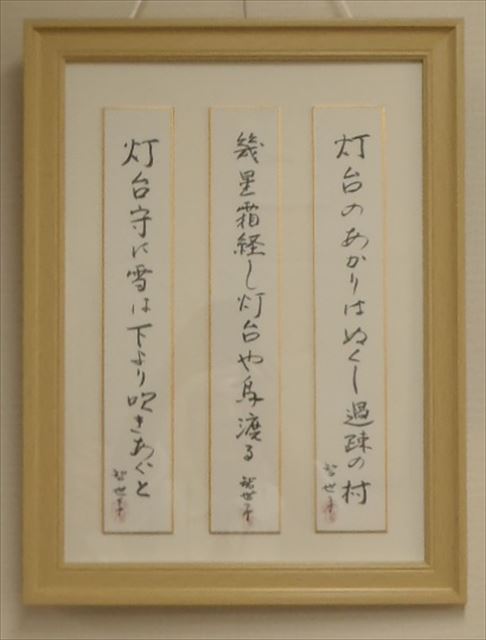 灯台のあかりはぬくし過疎の村
智世子
幾星霜経し灯台や鳥渡る
智世子
灯台守に雪は下より吹きあぐと
智世子